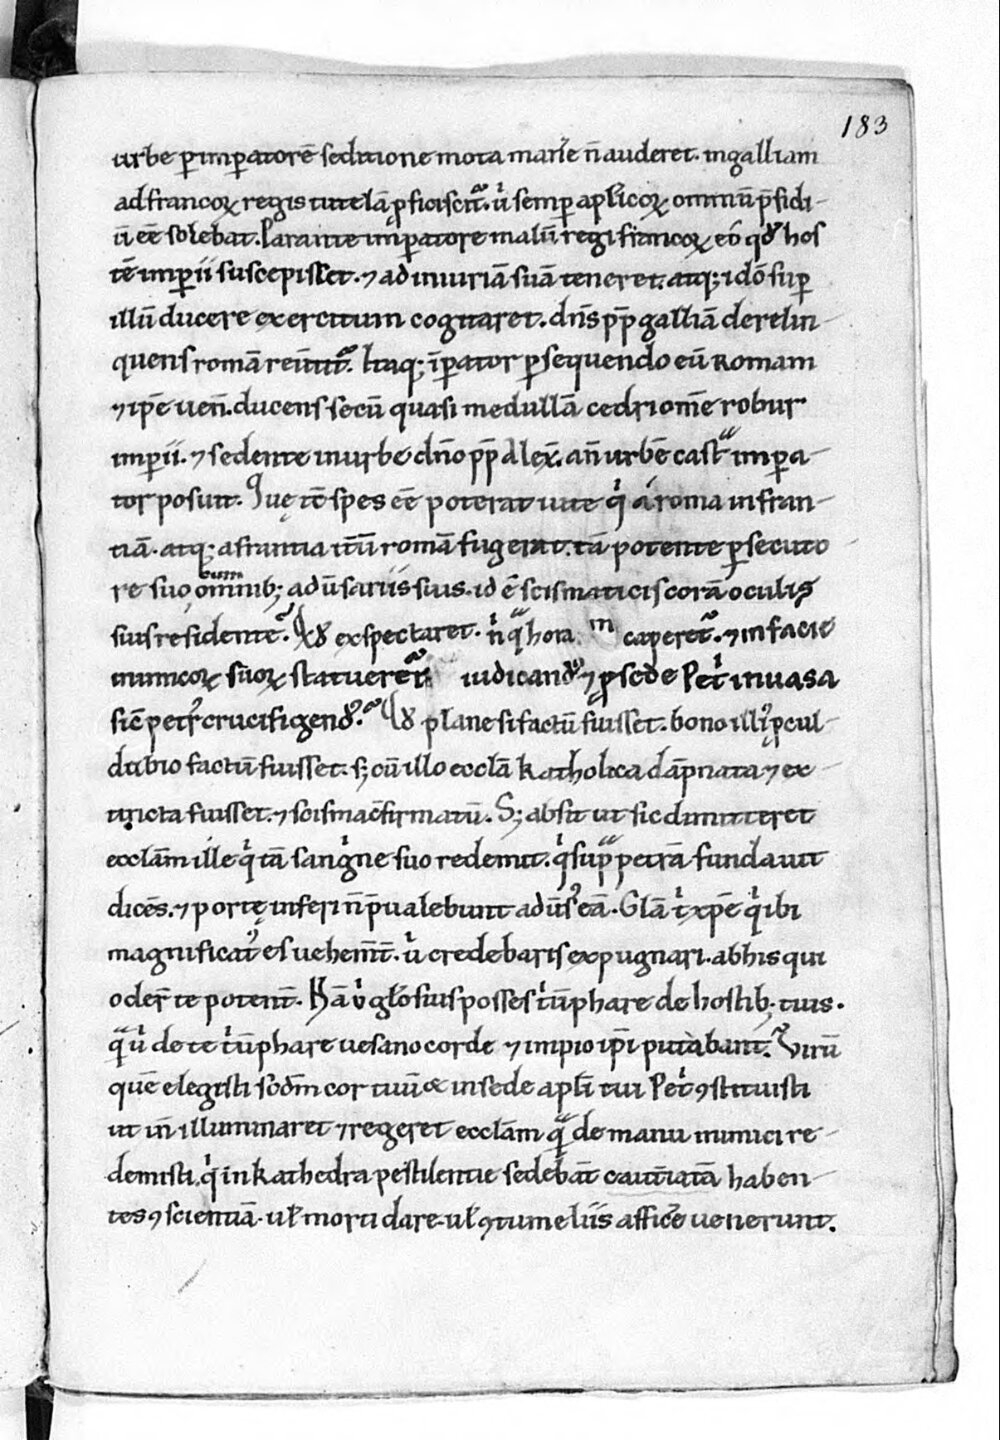 183
urbe ꝑimꝑatorē seditione mota manꝰe n̄ auderet. in galliam
ad francoꝝ regis tutelā ꝓficiscit᷑. ů semꝑ aplicoꝝ omniū p̄sidi-
ū eē solebat. Parante imꝑatore malū regi francoꝝ eo ꝙ hos
tē imꝑii suscepisset. ⁊ ad iniuriā suā teneret. atq; idō suꝑ
illū ducere exercitum cogitaret. dn̄s pp̄ galliā derelin-
quens romā reu̅tit᷑. Itaq; īꝑator ꝑsequendo eū Romam
⁊ ip̄e uen̄. ducens secū quasi medullā cedri om̄e robur
imꝑii. ⁊ sedente in urbe dn̄o pp̄ Alex̄. an̄ urbē castᷓ imꝑa-
tor posuit. Quę tē spes eē poterat uite qͥ a roma in fran-
tiā. atq; a frantia itū romā fugerat. tā potente ꝑsecuto
re suo cum omnib; adūsariis suis. id ē scismaticis corā oculis
suis residente? Qͩ exspectaret. nͥ qᷓ hora in caperet᷑. ⁊ in facie
inimicoꝝ suoꝝ statueret᷑ iudicandꝰ ⁊ ꝓ sede Petͥ inuasa
sic̄ petrꝰ crucifigendꝰ? Qͩ plane si factū fuisset. bono illiꝰ ꝓcul-
dubio factū fuisset. s; cū illo ecclā katholica dāpnata ⁊ ex-
tincta fuisset. ⁊ scisma c̄firmatū. S; absit ut sic dimitteret
ecclām ille qͥ tā sangͥne suo redemit. qͥ supᷓ petrā fundauit
dicēs. ⁊ portę inferi n̄ p̄ualebunt adūsꝰ eā. Glā tͥ xp̄e qͥ ibi
magnificatꝰ es uehem̄t̄. uͥ credebaris expugnari. ab his qui
oder̄t te potent̄. Hā uͥ gło̅sius posses tͥūphare de hostib; tuis.
qᷓ uͥ de te tͥūphare uesano corde ⁊ impio ip̄i putabant? Virū
quē elegisti scd̄m cor tuū & in sede apli tui Petͥ ꝯstituisti
ut in̄ illuminaret ⁊ regeret ecclām qᷓ de manu inimici re-
demisti. qͥ in kathedra pestilentie sedebāt cautīatā haben-
tes ꝯscientiā. uł morti dare. uł ꝯtumeliis afficē uenerunt.